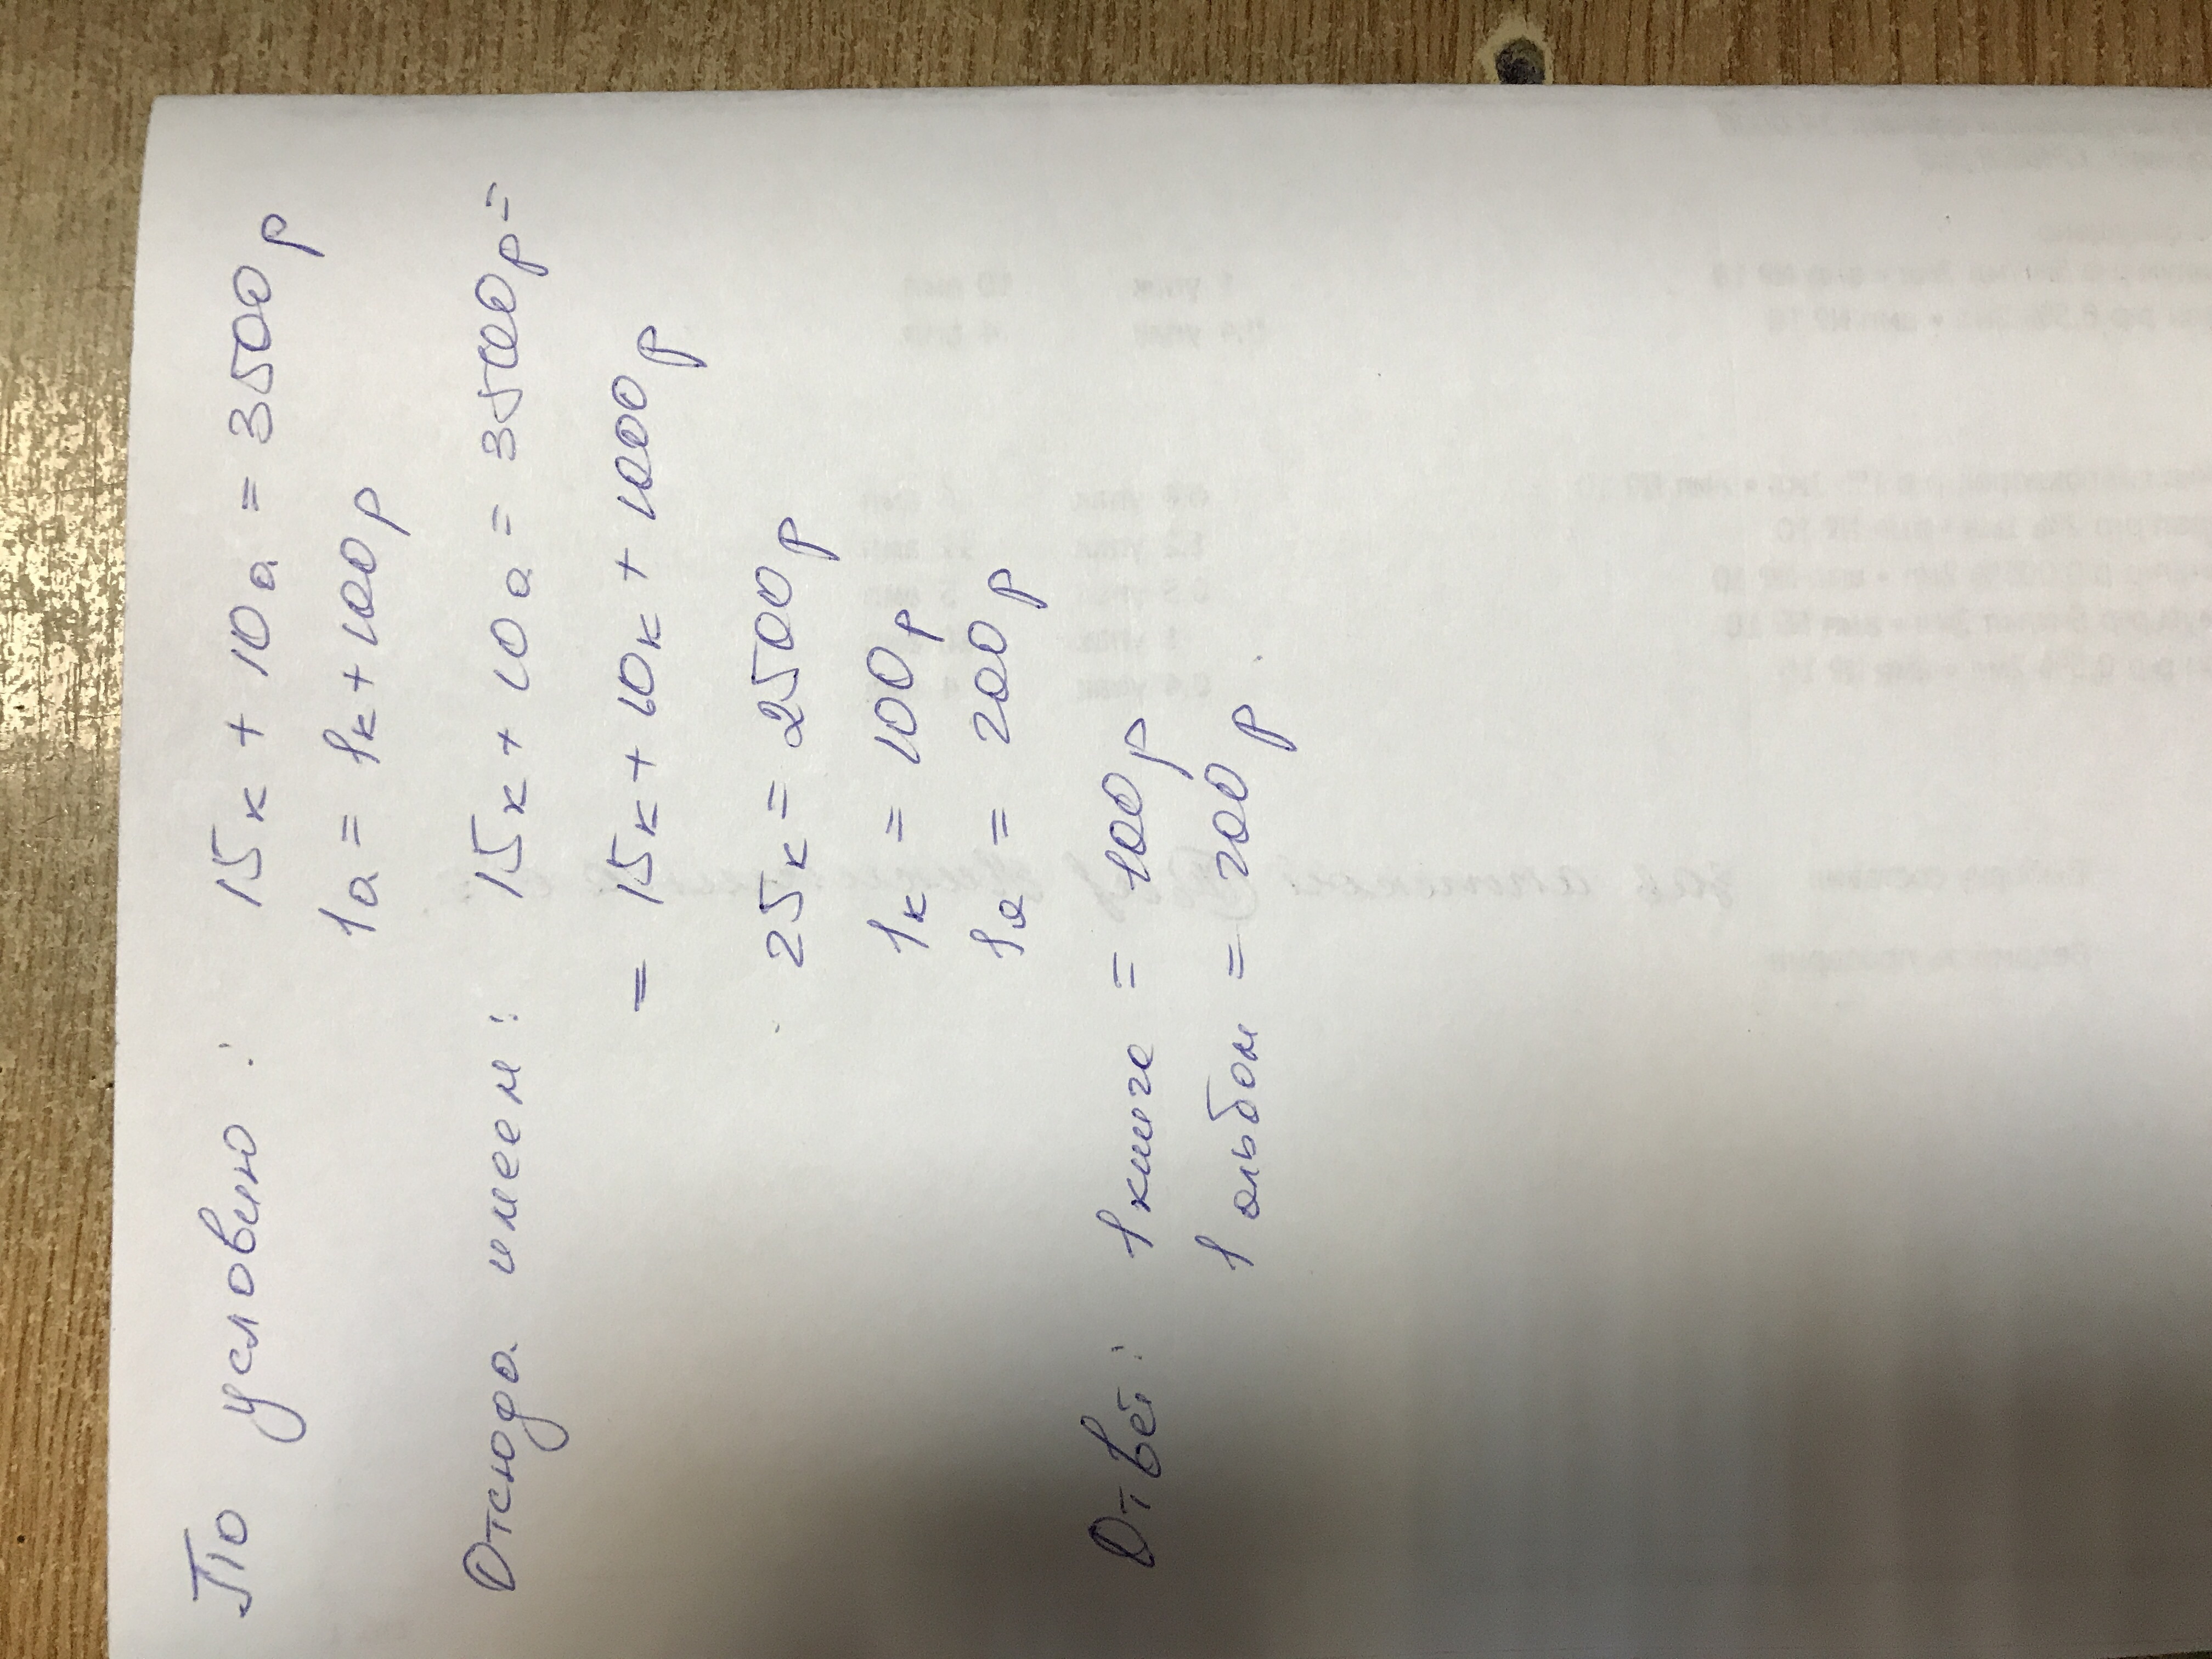 По условию: 15к + 10а = 3500 р
1а = 1к + 100 р
Отсюда имеем: 15к + 10а = 3500 р =
= 15к + 10к + 1000 р
25к = 2500 р
1к = 100 р
1а = 200 р
Ответ: 1 книга = 100 р
1 альбом = 200 р